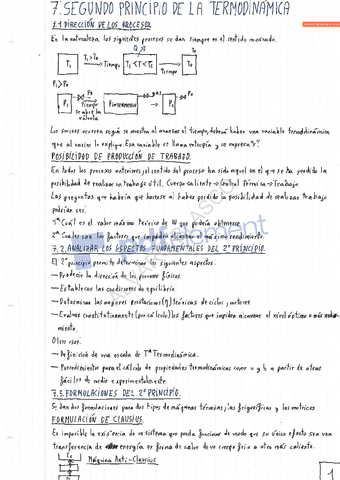 7. SEGUNDO PRINCIPIO DE LA TERMODINÁMICA
7.1 DIRECCIÓN DE LOS PROCESOS
En la naturaleza, los siguientes procesos se dan siempre en el sentido mostrado.
Q
T1 T1>T0 Tiempo T1<T<T0 Tiempo T0
P1>P0
P1 P0 Tiempo se abre la válvula Pintermedia gas P0 Tiempo P0
Los sucesos ocurren según se muestra al avanzar el tiempo, deberá haber una variable termodinámica
que al variar lo explique. Esa variable se llama entropía y se expresa "s".
POSIBILIDAD DE PRODUCCIÓN DE TRABAJO.
En todos los procesos anteriores, el sentido del proceso ha sido aquel en el que se ha perdido la
posibilidad de realizar un trabajo útil. Cuerpo caliente → Central Térmica → Trabajo
Las preguntas que habría que hacerse al haber perdido la posibilidad de realizar trabajo
podrían ser:
1ª Cuál es el valor máximo teórico de W que podría obtenerse
2ª Cuales son los factores que impiden alcanzar el máximo rendimiento
7.2. ANALIZAR LOS ASPECTOS FUNDAMENTALES DEL 2º PRINCIPIO.
El 2º principio permite determinar los siguientes aspectos.
— Predecir la dirección de los procesos físicos.
— Establecer las condiciones de equilibrio
— Determinar las mejores prestaciones (η) teóricas de ciclos y motores
— Evaluar cuantitativamente (por cálculo) los factores que impiden alcanzar el nivel óptimo o más rendi-
miento.
Otros usos.
— Definición de una escala de Tª Termodinámica.
— Procedimientos para el cálculo de propiedades termodinámicas como u y h a partir de otras
fáciles de medir experimentalmente.
7.3. FORMULACIONES DEL 2º PRINCIPIO.
Se dan dos formulaciones para dos tipos de máquinas térmicas, las frigoríficas y las motrices
FORMULACIÓN DE CLAUSIUS.
Es imposible la existencia de un sistema que pueda funcionar de modo que su único efecto sea una
transferencia de energía en forma de calor de un cuerpo frío a otro más caliente.
Máquina Anti-Clausius
1